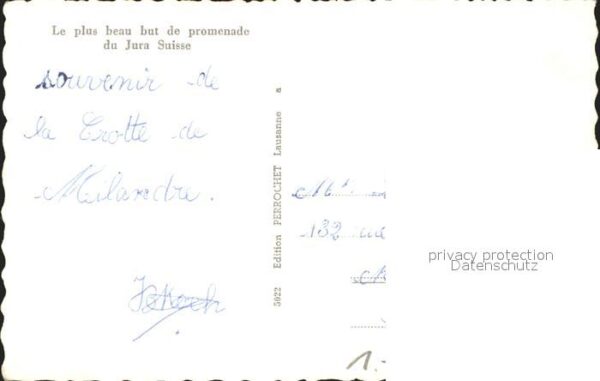 Le plus beau but de promenade
du Jura Suisse
souvenir de
la Grotte de
Milandre.
5922 Edition PERROCHET Lausanne a
132
privacy protection
Datenschutz
1.-